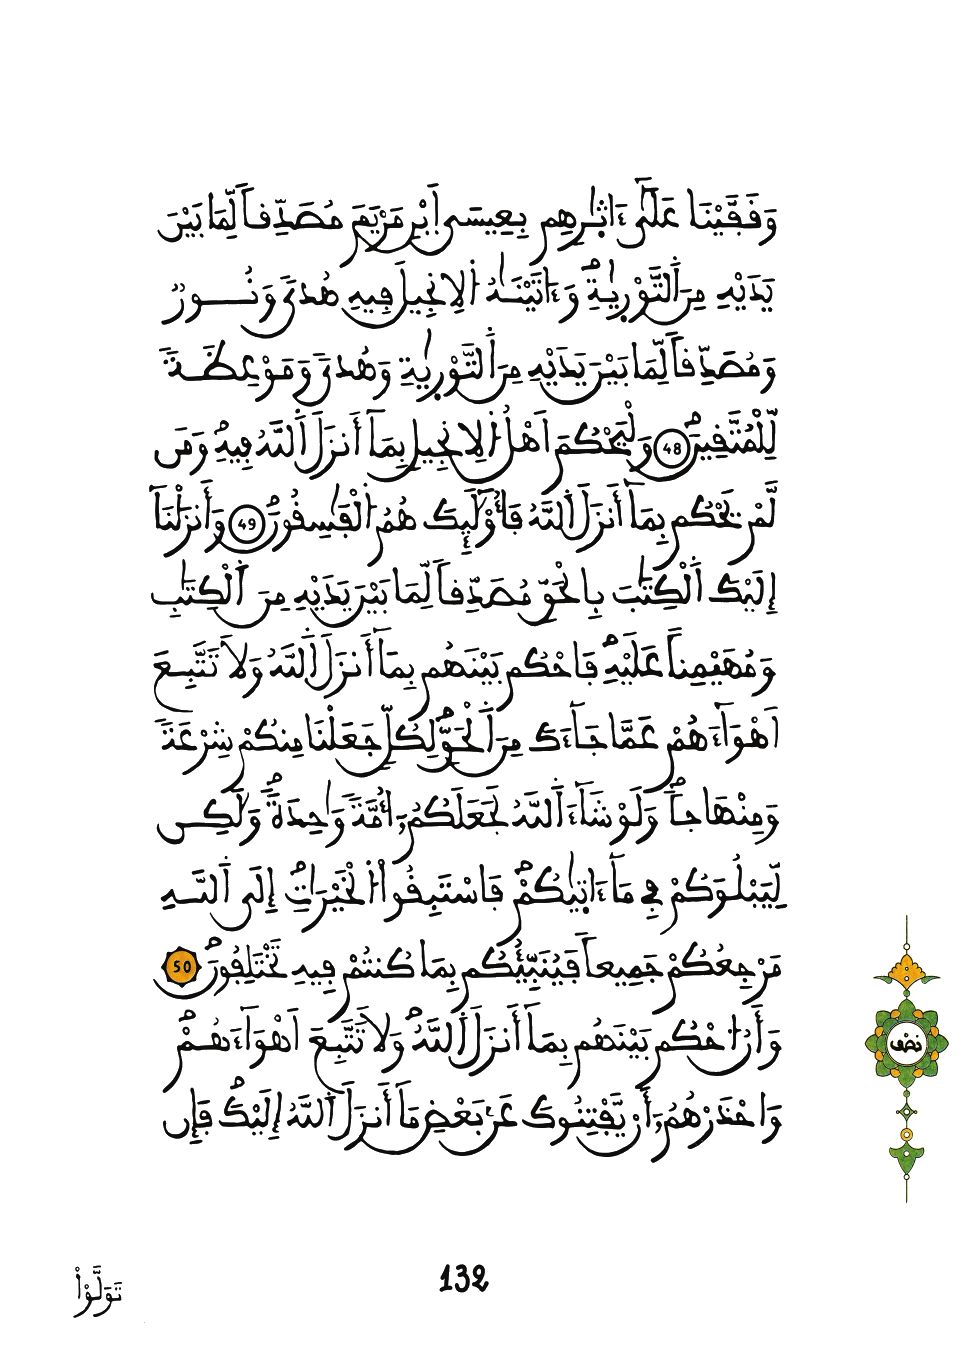 وَقَفَّيْنَا عَلَىٰٓ ءَاثٰرِهِم بِعِيسَى ابْنِ مَرْيَمَ مُصَدِّقاً لِّمَا بَيْنَ
يَدَيْهِ مِنَ التَّوْرٰيةِ وَءَاتَيْنَٰهُ الِانجِيلَ فِيهِ هُدىً وَنُورٌ
وَمُصَدِّقاً لِّمَا بَيْنَ يَدَيْهِ مِنَ التَّوْرٰيةِ وَهُدىً وَمَوْعِظَةً
لِّلْمُتَّقِينَ 48 وَلْيَحْكُمَ اَهْلُ الِانجِيلِ بِمَآ أَنزَلَ اَللَّهُ فِيهِ وَمَن
لَّمْ يَحْكُم بِمَآ أَنزَلَ اَللَّهُ فَأُوْلَٰٓئِكَ هُمُ الْفَٰسِقُونَ 49 وَأَنزَلْنَآ
إِلَيْكَ اَلْكِتَٰبَ بِالْحَقِّ مُصَدِّقاً لِّمَا بَيْنَ يَدَيْهِ مِنَ اَلْكِتَٰبِ
وَمُهَيْمِناً عَلَيْهِ فَاحْكُم بَيْنَهُم بِمَآ أَنزَلَ اَللَّهُ وَلَا تَتَّبِعَ
اَهْوَآءَهُمْ عَمَّا جَآءَكَ مِنَ اَلْحَقِّ لِكُلٍّ جَعَلْنَا مِنكُمْ شِرْعَةً
وَمِنْهَاجاً وَلَوْ شَآءَ اَللَّهُ لَجَعَلَكُمُۥٓ أُمَّةً وَٰحِدَةً وَلَٰكِن
لِّيَبْلُوَكُمْ فِي مَآ ءَاتٰيكُمْ فَاسْتَبِقُواْ الْخَيْرَٰتِ إِلَى اَللَّهِ
مَرْجِعُكُمْ جَمِيعاً فَيُنَبِّئُكُم بِمَا كُنتُمْ فِيهِ تَخْتَلِفُونَ 50
وَأَنُ احْكُم بَيْنَهُم بِمَآ أَنزَلَ اَللَّهُ وَلَا تَتَّبِعَ اَهْوَآءَهُمْ
وَاحْذَرْهُمُۥٓ أَنْ يَّفْتِنُوكَ عَنۢ بَعْضِ مَآ أَنزَلَ اَللَّهُ إِلَيْكَ فَإِن
نصف
تَوَلَّوْاْ
132